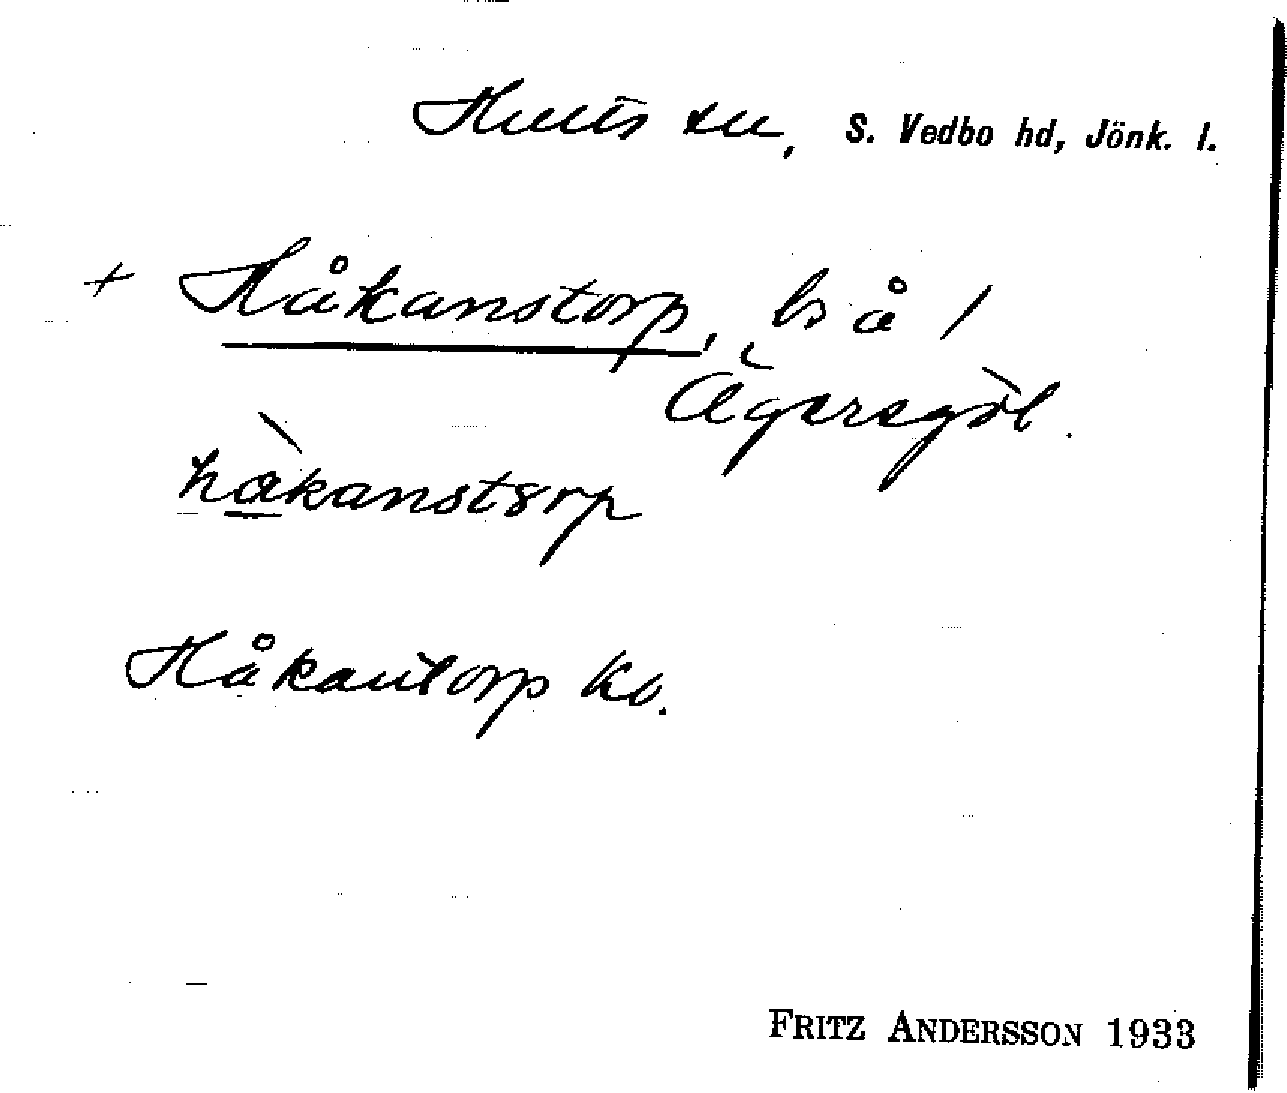 Hults sn, S. Vedbo hd, Jönk. l.
+ Håkanstorp, ls å /
Ägersgöl.
håkanstorp
Håkantorp Kb.
FRITZ ANDERSSON 1933